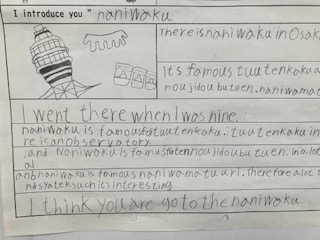 I introduce you " naniwaku
There is naniwaku in Osak
It's famous tuutenkaku a
noujidoubutuen. naniwamat
I went there when I was nine.
naniwaku is famous for tuutenkaku. tuutenkaku in
re is an observatory.
and Naniwaku is famus for ten nou jidoubu tuen. In a lot
al.
and naniwaku is famous naniwamatuuri. Therefore a lot
and syateki such its interesting
I think you are go to the naniwaku.